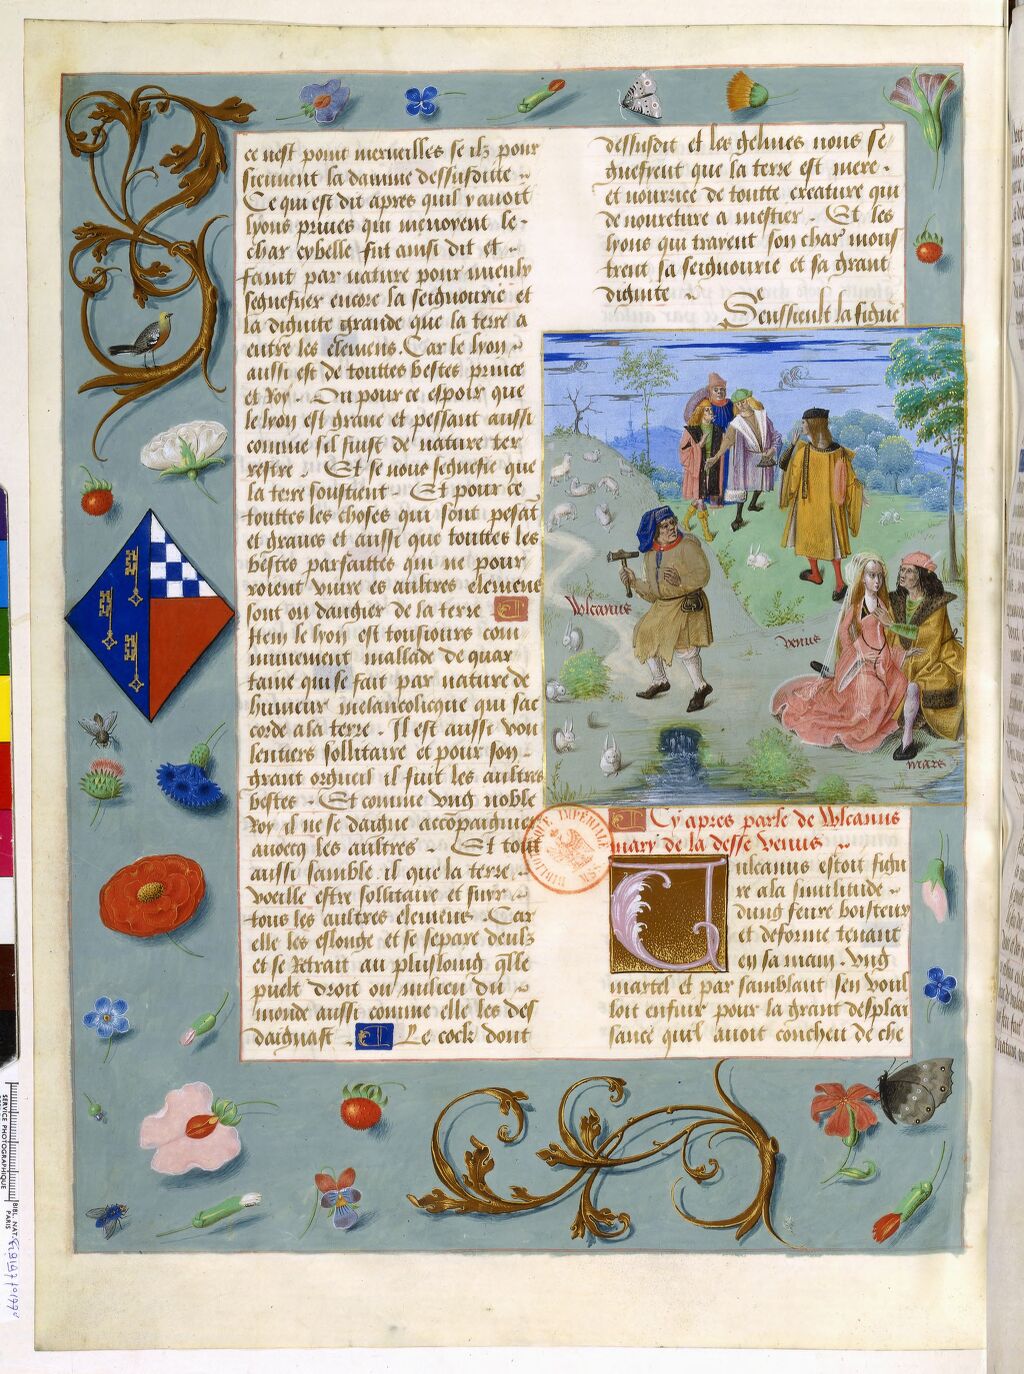 ce nest point merueilles se ilz pour
siennent la damme dessusditte
Ce qui est dit apres quil y auoit
lyons priues qui menoyent le
char cybelle fut ainsi dit et
faint par nature pour mieulx
segnefier encore la seignourie et
la dignite grande que la terre a
entre les elemens. Car le lyon
aussi est de touttes bestes prince
et Roy. Ou pour ce espoir que
le lyon est graue et pessant aussi
comme sil fuise de nature ter
restre. Et se nous segnefie que
la terre soustient. Et pour ce
touttes les choses qui sont pesāt
et graues et aussi que touttes les
bestes parfaittes qui ne pour
roient viure es aultres elemens
sont ou dangier de la terre
Item le lyon est tousiours com
munement mallade de quar
taine qui se fait par nature de
humeur melancolicque qui sac
corde a la terre. Il est aussi vou
lentiers sollitaire et pour son
grant orgueil il fuit les aultres
bestes. Et comme vng noble
Roy il ne se daigne accōpaignier
auoecq les aultres. Et tout
aussi samble il que la terre
voeille estre sollitaire et fuir
tous les aultres elemens. Car
elle les eslonge et se separe deulz
et se Retrait au plusloing q̄lle
puelt droit ou milieu du
monde aussi comme elle les des
daignast. Le cock dont
dessusdit et les gelines nous se
gnefient que la terre est mere
et nourrice de toutte creature qui
de noureture a mestier. Et les
lyons qui trayent son char mous
trent sa seignourie et sa grant
dignite
Senssieult la figue
Wlcanus
venus
mars
Cy apres parle de Wlcanus
mary de la desse venus
Uulcanus estoit figu
re a la similitude
dung feure boisteux
et deforme tenant
en sa main. Vng
martel et par samblant sen voul
loit enfuir pour la grant desplai
sance quil auoit concheu de che
BIBLIOTHÈQUE IMPÉRIALE
MSS.
SERVICE PHOTOGRAPHIQUE
BIBL. NAT. PARIS